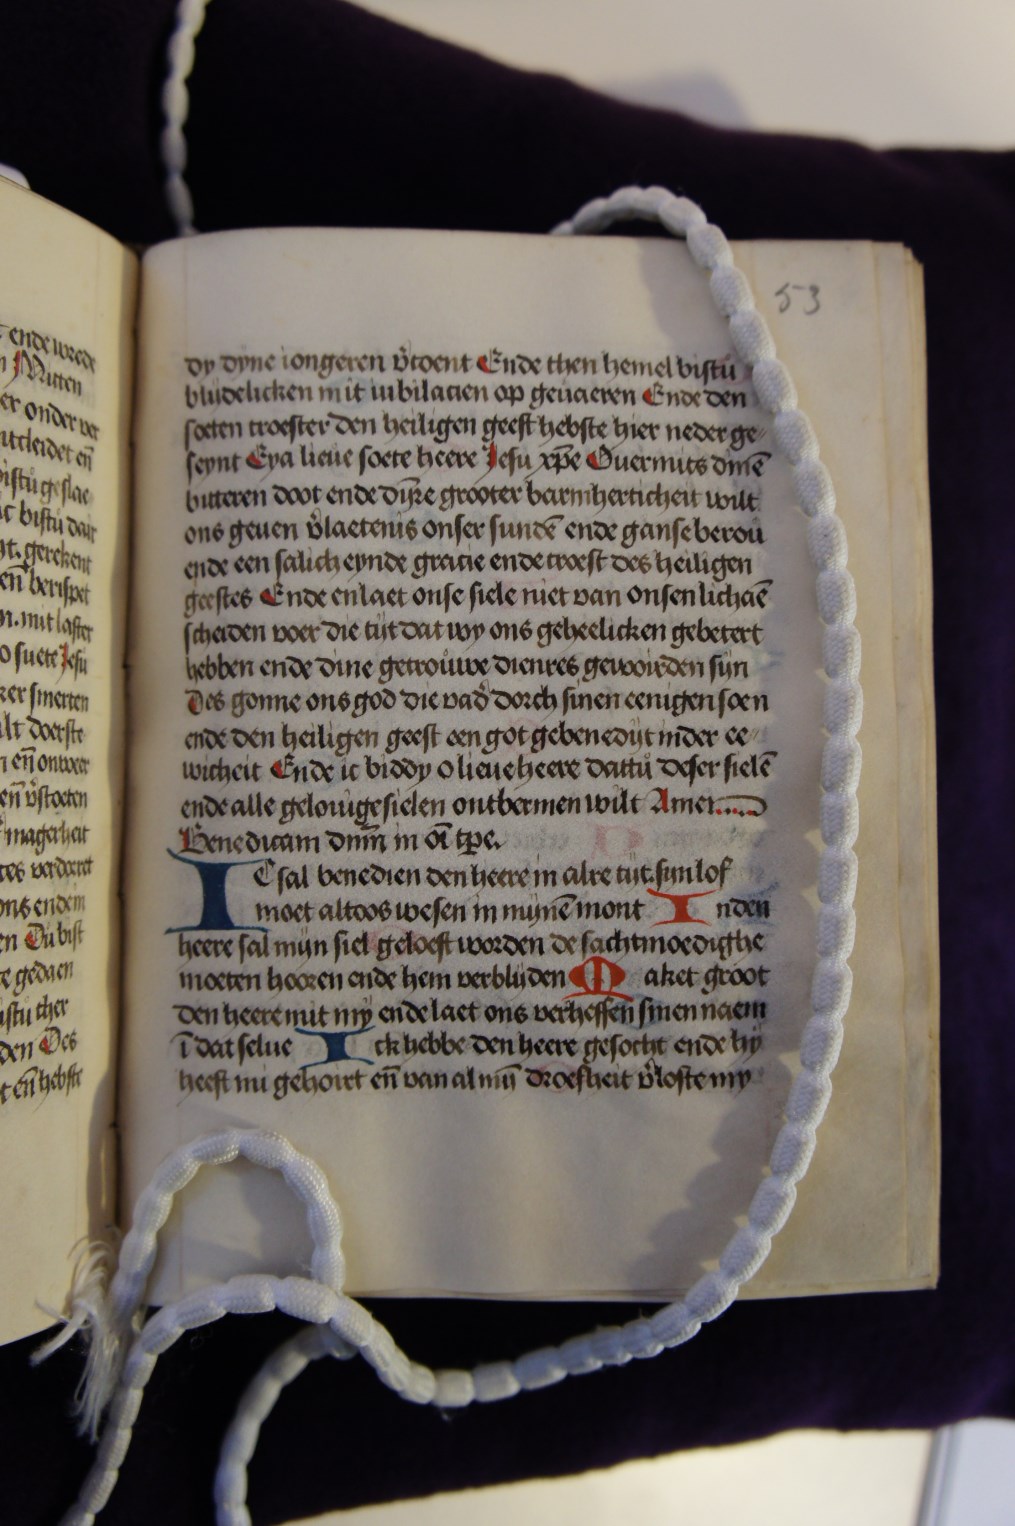 ende wrede
Mitten
er onder ver
ntcleidet en̄
bistu geslae
ac bistu daer
gerekent
en̄ berispet
mit laster
o suete Jesu
zer smerten
doerste
en̄ ontwer
en̄ v̓stoeten
magerheit
tes verdorret
ons endem
en Du bist
te gedaen
istu ther
den Des
en̄ hebste
53
dy dyne iongeren v̓toent Ende then hemel bistu
blijdelicken mit iubilacien op geuaeren Ende den
soeten troester den heiligen geest hebste hier neder ge⸗
seynt Eya lieue soete heere Jesu xp̄e Ouermits dinē
bitteren doot ende dijnre grooter barmherticheit wilt
ons geuen v̓laetenis onser sundē ende ganse berou
ende een salich eynde gracie ende troest des heiligen
geestes Ende enlaet onse siele niet van onsen lichāe
scheiden voer die tijt dat wy ons geheelicken gebetert
hebben ende dine getrouwe dienres geworden sijn
Des gonne ons god die vad̓ dorch sinen eenigen soen
ende den heiligen geest een got gebenedijt inder ee⸗
wicheit Ende ic biddy o lieue heere dattu deser sielē
ende alle gelouige sielen ontbermen wilt Amen
Benedicam dnm̄ in oī tpe.
IC sal benedien den heere in alre tijt. sijn lof
moet altoos wesen in mijnē mont Inden
heere sal mijn siel geloeft worden de sachtmoedighe
moeten hooren ende hem verblijden Maket groot
den heere mit my ende laet ons verheffen sinen naem
ī dat selue Ick hebbe den heere gesocht ende hy
heeft mi gehoret en̄ van al mijn̄ droefheit v̓loste my